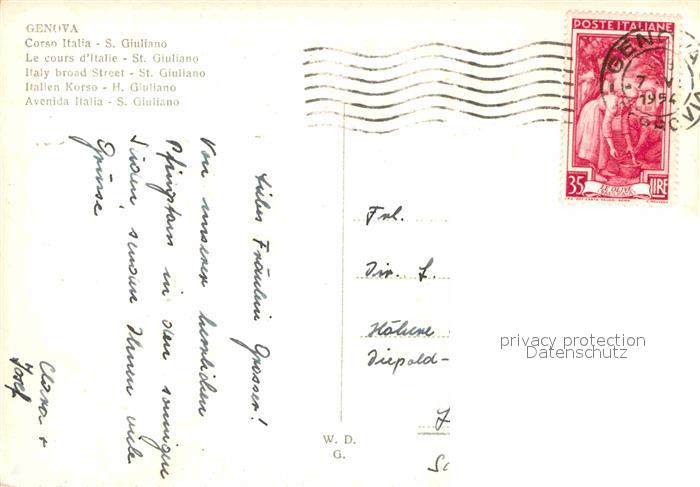 GENOVA
Corso Italia - S. Giuliano
Le cours d'Italie - St. Giuliano
Italy broad Street - St. Giuliano
Italien Korso - H. Giuliano
Avenida Italia - S. Giuliano
POSTE ITALIANE
GENOVA
7
1954
35 LIRE
LE OLIVE
Liebes Fräulein Grosser!
Von unserer herrlichen
Pfingstfahrt in den sonnigen
Süden, senden Ihnen viele
Grüsse
Clara +
Josef
Frl.
Dir. L.
Höhere
Diepold-
W. D.
G.
privacy protection
Datenschutz